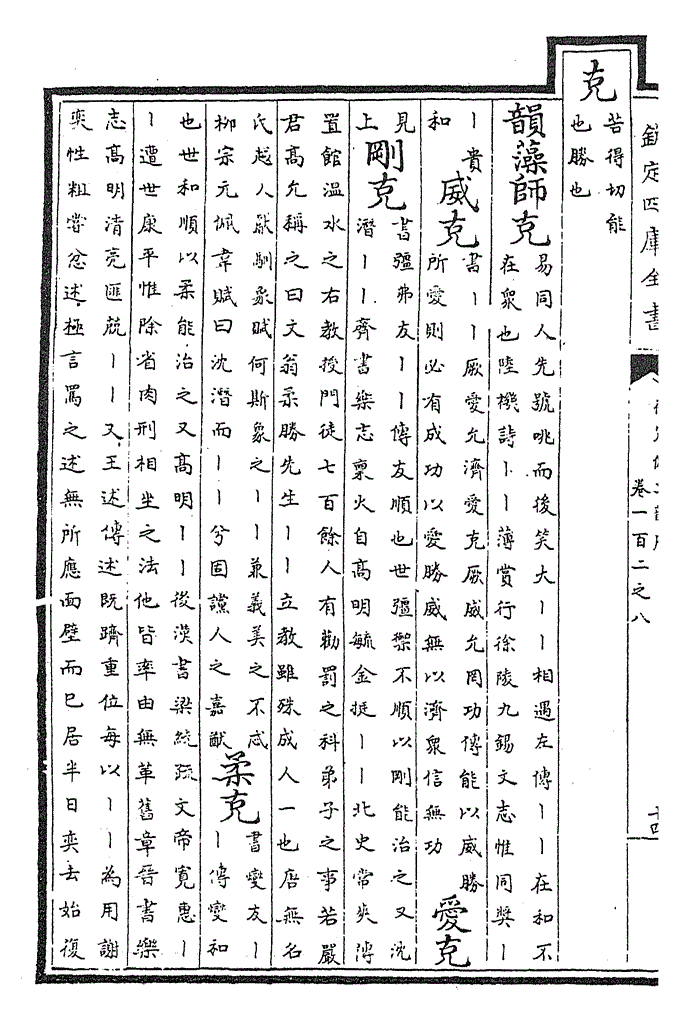 欽定四庫全書
卷一百二之八
克
苦得切能
也勝也
韻藻師克
易同人先號咷而後笑大丨丨相遇左傳丨丨在和不
在衆也陸機詩丨丨薄賞行徐陵九錫文志惟同獎丨
丨貴
和
威克
書丨丨厥愛允濟愛克厥威允罔功傳能以威勝
所愛則必有成功以愛勝威無以濟衆信無功
愛克
見
上
剛克
書彊弗友丨丨傳友順也世彊禦不順以剛能治之又沈
潛丨丨齊書樂志稟火自高明毓金挺丨丨北史常爽傳
置館温水之右教授門徒七百餘人有勸罰之科弟子之事若嚴
君高允稱之曰文翁柔勝先生丨丨立教雖殊成人一也唐無名
氏越人獻馴象賦何斯象之丨丨兼義美之不忒
柳宗元佩韋賦曰沈潛而丨丨兮固讜人之嘉猷
柔克
書燮友丨
丨傳燮和
也世和順以柔能治之又高明丨丨後漢書梁統疏文帝寬惠丨
丨遭世康平惟除省肉刑相坐之法他皆率由無革舊章晉書樂
志高明清亮匪兢丨丨又王述傳述既躋重位每以丨丨為用謝
奕性粗嘗忿述極言罵之述無所應面壁而已居半日奕去始復